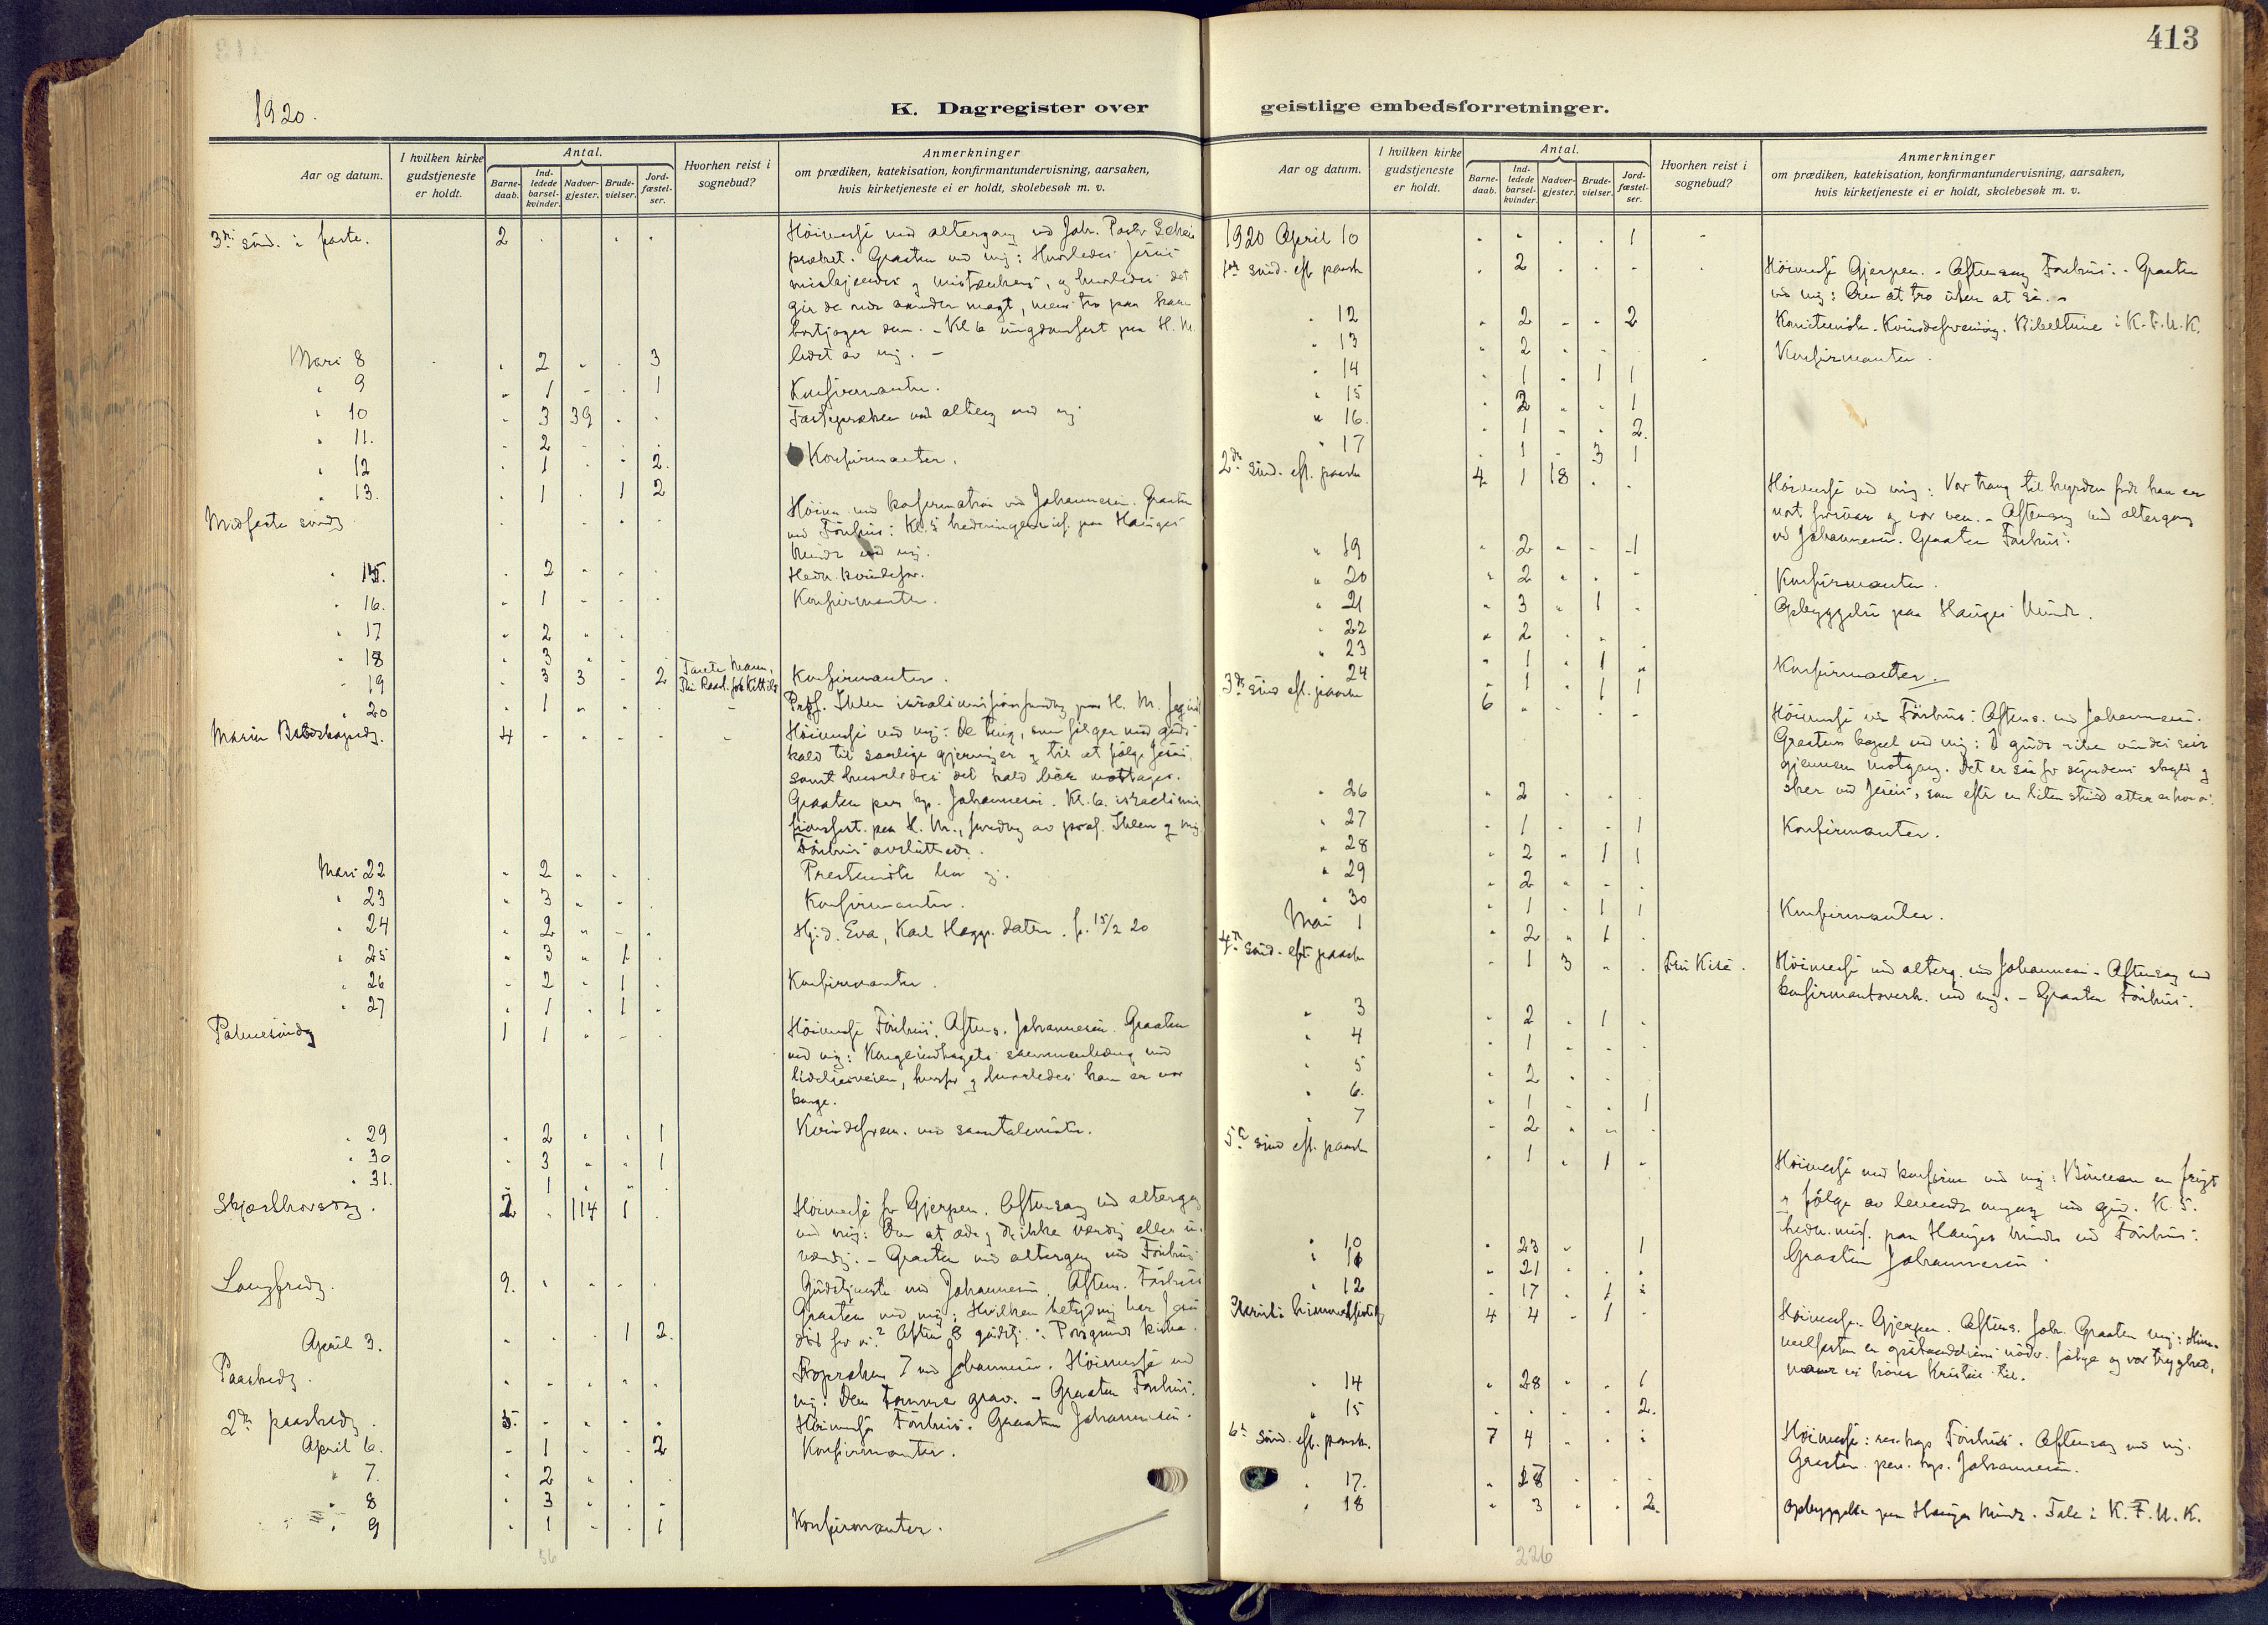 413
1920.
K. Dagregister over geistlige embedsforretninger.
Aar og datum.
I hvilken kirke gudstjeneste er holdt.
Antal.
Barnedaab.
Indledede barselkvinder.
Nadvergjester.
Brudevielser.
Jordfæstelser.
Hvorhen reist i sognebud?
Anmerkninger
om prædiken, katekisation, konfirmantundervisning, aarsaken,
hvis kirketjeneste ei er holdt, skolebesøk m. v.
3die sønd. i faste. 2 Høimesse med altergang ved Joh.
præket. Graaten ved mig: Hvorledes Jesus
miskjendes og mistænkes, og hvorledes det
gir de onde aander magt, mens tro paa ham
bortjager dem. - Kl 6 ungdomsfest paa H. M.
ledet av mig. -
Mars 8 2 3
" 9 1 1 Konfirmanter.
" 10 3 39 Fastepræken med alterg ved mig.
" 11. 2
" 12 1 2. Konfirmanter.
" 13. 1 1 2
Midfaste søndag Høim. med konfirmation ved Johannesen. Graaten
ved Förhus: Kl. 5 hedningemis. paa Hauges
Minde ved mig.
" 15. 2 Hedn. kvindefor.
" 16. 1 Konfirmanter.
" 17 2
" 18 3
" 19 3 3 2 Konfirmanter.
" 20 1 Prof. Ihlen israelsmissionsforedrag paa H. M.
Mariæ Budskapsdg. 4 Høimesse ved mig: De ting, som følger med guds
kald til særlige gjerninger og til at følge Jesus,
samt hvorledes det kald bør mottages.
Graaten pers. kap. Johannesen. Kl. 6. israelsmis
sionsfest. paa H. M., foredrag av prof. Ihlen og mig
Förhus avsluttede.
Mars 22 2 Prestemøte hos mig.
" 23 3 Konfirmanter.
" 24 2 Hj. d. Eva, Karl f. 15/2 20
" 25 3 1
" 26 2 1 Konfirmanter.
" 27 1 1
Palmesøndag 1 1 Høimesse Förhus. Aftens. Johannesen. Graaten
ved mig: Kongeindtogets sammenhæng med
lidelsesveien, hvorfor og hvorledes han er vor
konge.
" 29 2 1 Kvindeforen. med samtalemøte.
" 30 3 1
" 31. 1
Skjærthorsdag. 2 114 1 Høimesse for Gjerpen. Aftensang med altergang
ved mig: Om at æde og drikke værdig eller u-
værdig. - Graaten med altergang ved Förhus
Langfredg. 9. Gudstjeneste ved Johannesen. Aftens. Förhus
Graaten ved mig: Hvilken betydning har Jesu
død for os? Aften 8 gudstj. i Porsgrund kirke.
April 3. 1 2.
Paaskedg. Fropræken 7 ved Johannesen. Høimesse ved
mig: Den tomme grav. - Graaten Förhus.
2den paaskedag. 5. Høimesse Förhus. Graaten Johannesen.
April 6. 1 2 Konfirmanter.
" 7. 2
" 8 3
" 9 1 1 Konfirmanter.
56
1920 April 10 1
1ste sønd. eft. paaske 2 Høimesse Gjerpen. - Aftensang Förhus. - Graaten
ved mig: Om at tro uten at se. -
" 12 2 2 Komitemøte. Kvindeforening. Bibeltime i K.F.U.K.
" 13 2 Konfirmanter.
" 14 1 1 1
" 15 2 1
" 16. 1 2.
" 17 1 3 1
2den sønd. eft. paaske 4 1 18 Høimesse ved mig: Vor trang til hyrden fordi han er
vort forsvar og vor ven. - Aftensang med altergang
ved Johannesen. Graaten Förhus.
" 19 2 1
" 20 2 Konfirmanter.
" 21 3 1 Opbyggelse paa Hauges Minde.
" 22 2
" 23 1 1 Konfirmanter.
" 24 1 1 1
3die sønd eft. paaske 6 Høimesse ved Förhus. Aftens. ved Johannesen.
Graatens kapel ved mig: I guds rike vindes seir
gjennem motgang. Det er saa for syndens skyld og
sker ved Jesus, som efter en liten stund atter er hos os.
" 26 2
" 27 1 1 Konfirmanter.
" 28 2 1 1
" 29 2
" 30 1 1 1 Konfirmanter.
Mai 1 2 1
4de sønd. eft. paaske 1 3 Høimesse med alterg. ved Johannesen - Aftensang med
konfirmantoverh. ved mig. - Graaten Förhus.
" 3 2 1
" 4 1
" 5 2
" 6. 1 1
" 7 2
5te sønd eft. paaske 1 1 Høimesse med konfirm ved mig: Bønnen en frugt
og følge av levende omgang med gud. K. 5.
hedn. mis. paa Hauges minde ved Förhus.
Graaten Johannesen.
" 10 23 1
" 11 21
" 12 17 1
Kristi himmelfartsdg 4 4 1 Høimesse. Gjerpen. Aftens. Joh. Graaten mig: Him-
melfarten en opstandelsens nødv. følge og vor tryghed,
naar vi hører Kristus til.
" 14 28 1
" 15 2.
6te sønd. eft. paaske. 7 4 Høimesse: res. kap Förhus. Aftensang ved mig.
Graaten. pers. kap. Johannesen.
" 17. 28
" 18 3 2. Opbyggelse paa Hauges Minde. Tale i K.F.U.K.
226